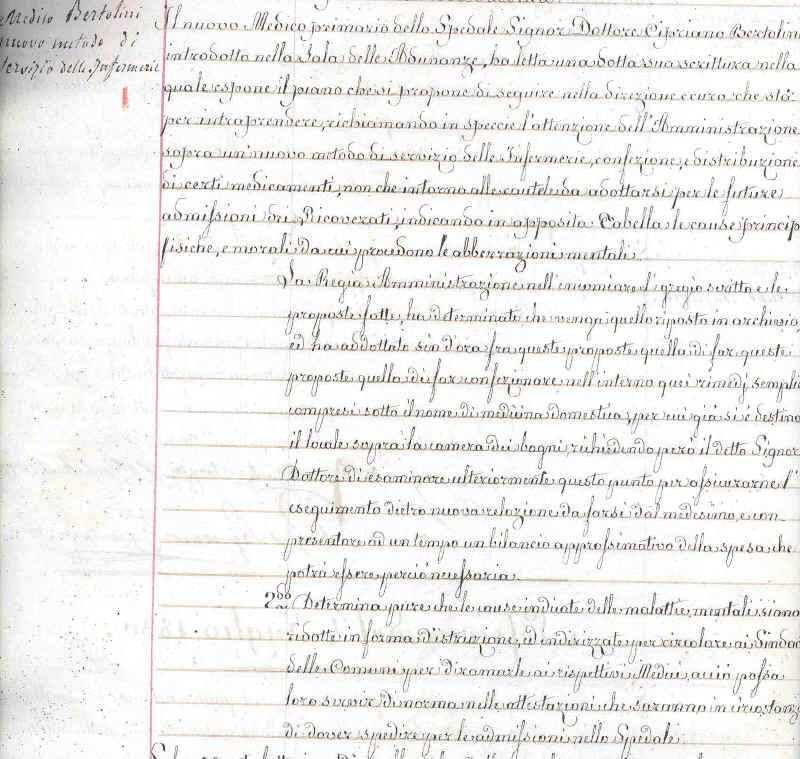 Medico Bertolini
nuovo metodo di
servizio delle Infermerie
Il nuovo Medico primario dello Spedale Signor Dottore Cipriano Bertolini
introdotto nella Sala delle Adunanze, ha letta una dotta sua scrittura nella
quale espone il piano che si propone di seguire nella direzione e cura che stà
per intraprendere, richiamando in speccie l'attenzione dell'Amministrazione
sopra un nuovo metodo di servizio delle Infermerie, confezione, e distribuzione
di certi medicamenti, non che intorno alle cautele da adottarsi per le future
admissioni dei Ricoverati, indicando in apposita Tabella le cause princip
fisiche, e morali da cui procedono le abberrazioni mentali.
La Regia Amministrazione nell'encomiare l'gregio scritto e le
proposte fatte, ha determinato che venga quello riposto in archivio
ed ha addottato sin d'ora fra queste proposte quella di far queste
proposte quella di far confezionare nell'interno quei rimedj sempli
compresi sotto il nome di medicina domestica, per cui già si è destino
il locale sopra la camera dei bagni, richiedendo però il detto Signor
Dottore di esaminare ulteriormente questo punto per assicurarne l'
eseguimento dietro nuova relazione da farsi dal medesimo, e con
presentare ad un tempo un bilancio approssimativo della spesa che
potrà essere perciò necessaria.
2do Determina pure che le cause indicate delle malattie, mentali siano
ridotte in forma d'istruzione, ed indirizzate per circolare ai Sindac
delle Comuni per diramarle ai rispettivi Medici, acciò possa
loro servir di norma nelle attestazioni che saranno in circostanz
di dover spedire per le admissioni nello Spedale.